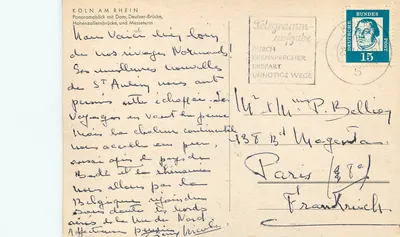 KÖLN AM RHEIN
Panoramablick mit Dom, Deutzer-Brücke,
Hohenzollernbrücke, und Messeturm
Nous voici bien loin
de nos rivages Normands!
Les meilleures nouvelles
de St Aubin nous ont
permis cette
Voyages en vaut la peine
Mais la chaleur continentale
nous accable un peu,
aussi après le pays de
Barthe et la rhénanie
nous allons par la
Belgique rejoindre
sans doute les bords
de la Mer du Nord
Affectueux
Telegramm-
aufgabe
DURCH
FERNSPRECHER
ERSPART
UNNÖTIGE WEGE
DEUTSCHE BUNDESPOST
15
Mr & Mme P. Bellien
138 Bd Magenta
Paris
Frankreich